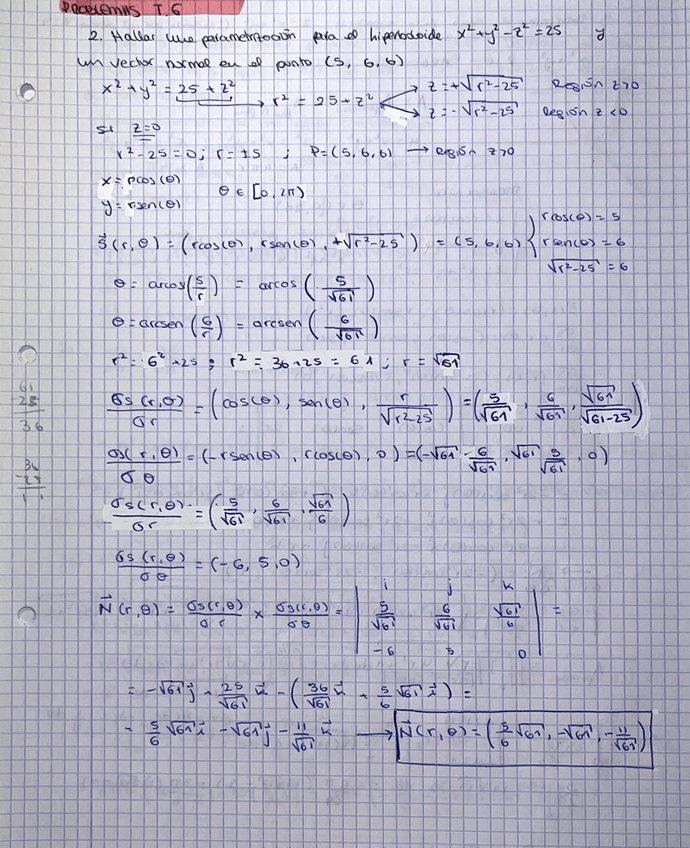 PROBLEMAS T.6
2. Hallar una parametrización para el hiperboloide x² + y² - z² = 25 y
un vector normal en el punto (5, 6, 6)
x² + y² = 25 + z² → r² = 25 + z² z = +√(r²-25) Región z>0
z = -√(r²-25) Región z<0
Si z=0
r² - 25 = 0; r = ±5 ; P = (5, 6, 6) → Región z>0
x = rcos(θ) θ ∈ [0, 2π)
y = rsen(θ)
s⃗(r, θ) = (rcos(θ), rsen(θ), +√(r²-25)) = (5, 6, 6) { rcos(θ) = 5
rsen(θ) = 6
√(r²-25) = 6
θ = arcos(5/r) = arcos(5/√61)
θ = arcsen(6/r) = arcsen(6/√61)
r² = 6² + 25 ; r² = 36 + 25 = 61 ; r = √61
61
-25
36
σs(r, θ)/σr = (cos(θ), sen(θ), r/√(r²-25)) = (5/√61, 6/√61, √61/√(61-25))
σs(r, θ)/σθ = (-rsen(θ), rcos(θ), 0) = (-√61 · 6/√61, √61 5/√61, 0)
36
σs(r, θ)/σr = (5/√61, 6/√61, √61/6)
σs(r, θ)/σθ = (-6, 5, 0)
i j k
N⃗(r, θ) = σs(r, θ)/σr × σs(r, θ)/σθ = | 5/√61 6/√61 √61/6 | =
-6 5 0
= -√61 j⃗ + 25/√61 k⃗ - (36/√61 k⃗ + 5/6 √61 i⃗) =
= 5/6 √61 i⃗ - √61 j⃗ - 11/√61 k⃗ → N⃗(r, θ) = (5/6 √61, -√61, -11/√61)